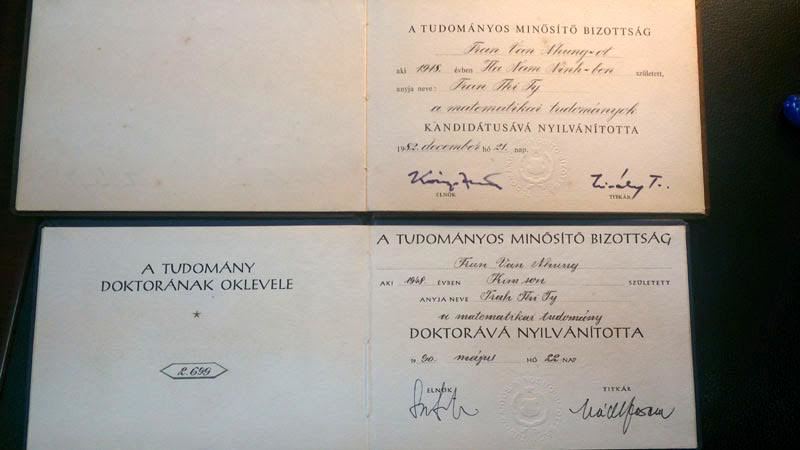 A TUDOMÁNYOS MINŐSÍTŐ BIZOTTSÁG
Tran Van Nhung-ot
aki 1948. évben Ha Nam Ninh-ben született,
anyja neve: Tran Thi Ty
a matematikai tudományok
KANDIDÁTUSÁVÁ NYILVÁNÍTOTTA
1982. december hó 21. nap.
ELNÖK TITKÁR
A TUDOMÁNY
DOKTORÁNAK OKLEVELE
2.699
A TUDOMÁNYOS MINŐSÍTŐ BIZOTTSÁG
Tran Van Nhung
AKI 1948. ÉVBEN Kim son SZÜLETETT
ANYJA NEVE Trah Thi Ty
a matematikai tudomány
DOKTORÁVÁ NYILVÁNÍTOTTA
19 90. május HÓ 22 NAP
ELNÖK TITKÁR